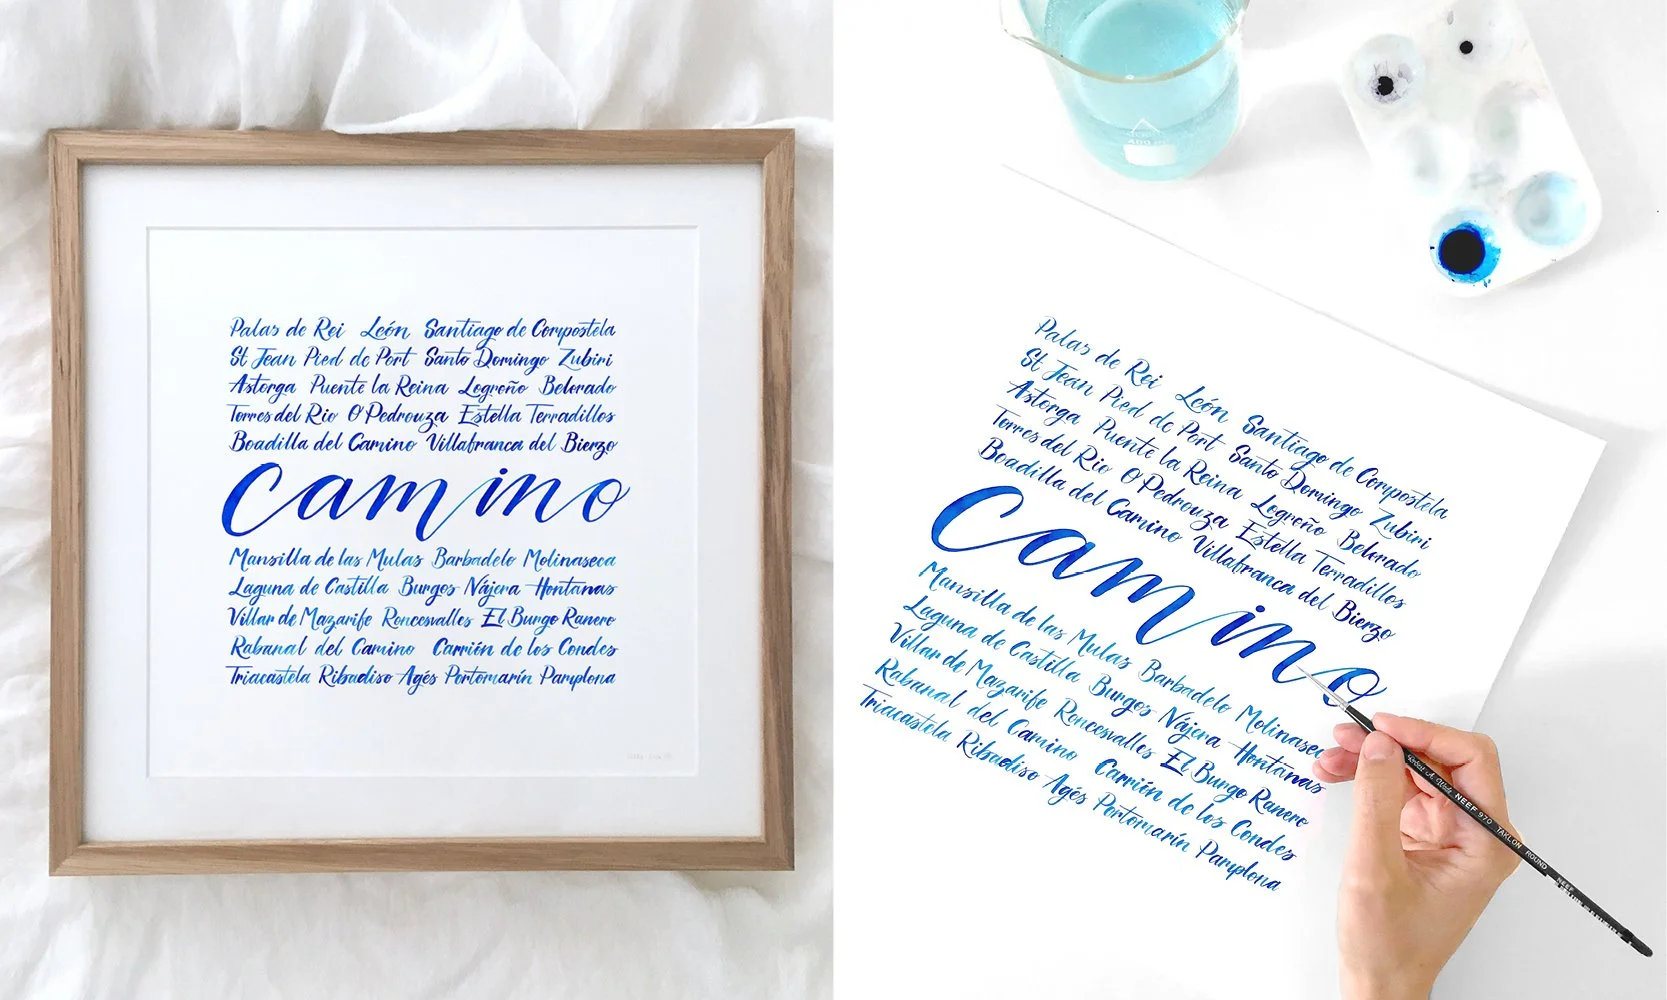 Palas de Rei León Santiago de Compostela
St Jean Pied de Port Santo Domingo Zubiri
Astorga Puente la Reina Logroño Belorado
Torres del Rio O'Pedrouza Estella Terradillos
Boadilla del Camino Villafranca del Bierzo
Camino
Mansilla de las Mulas Barbadelo Molinaseca
Laguna de Castilla Burgos Nájera Hontanas
Villar de Mazarife Roncesvalles El Burgo Ranero
Rabanal del Camino Carrión de los Condes
Triacastela Ribadiso Agés Portomarín Pamplona
Palas de Rei León Santiago de Compostela
St Jean Pied de Port Santo Domingo Zubiri
Astorga Puente la Reina Logroño Belorado
Torres del Rio O'Pedrouza Estella Terradillos
Boadilla del Camino Villafranca del Bierzo
Camino
Mansilla de las Mulas Barbadelo Molinasec
Laguna de Castilla Burgos Nájera Hontanas
Villar de Mazarife Roncesvalles El Burgo Ranero
Rabanal del Camino Carrión de los Condes
Triacastela Ribadiso Agés Portomarín Pamplona
NEEF 970 TAKLON ROUND NEEF